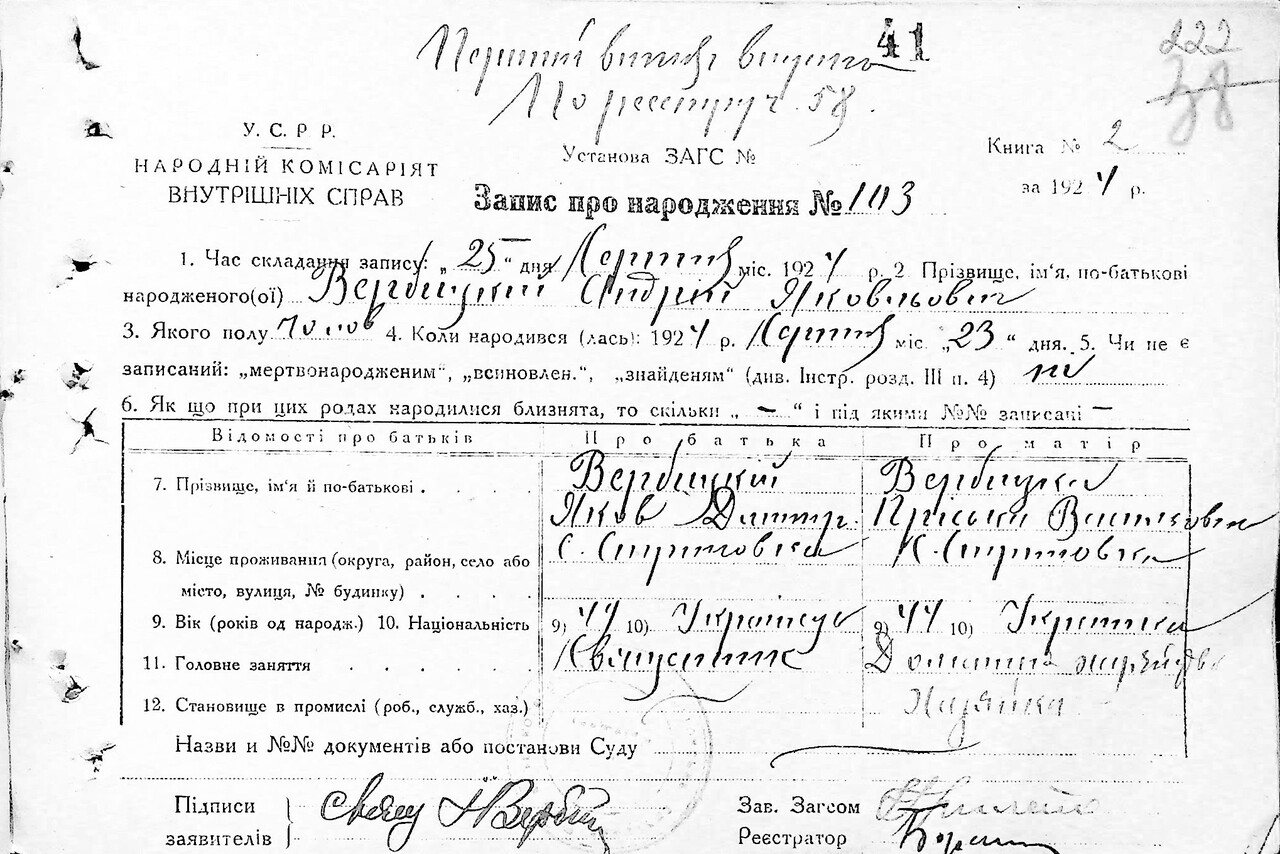 41
222
38
По реестру ч. 58.
У. С. Р Р.
НАРОДНІЙ КОМІСАРІЯТ
ВНУТРІШНІХ СПРАВ
Установа ЗАГС №
Книга № 2
за 1924 р.
Запис про народження № 103
1. Час складання запису: „ 25 “ дня міс. 1924 р. 2. Прізвище, ім'я, по-батькові
народженого(ої) Вербицкий Андрій Яковльович
3. Якого полу чолов 4. Коли народився (лась): 1924 р. міс. „23 “ дня. 5. Чи не є
записаний: „мертвонародженим“, „всиновлен.“, „знайденям“ (див. Інстр. розд. III п. 4) ні
6. Як що при цих родах народилися близнята, то скільки „ — “ і під якими №№ записані —
Відомості про батьків Про батька Про матір
7. Прізвище, ім'я й по-батькові . . . . . Вербицкий Вербицка
Яков Дмитр. Приська
8. Місце проживання (округа, район, село або
місто, вулиця, № будинку) . . . . .
9. Вік (років од народж.) 10. Національність 9) 44 10) Українець 9) 44 10) Українка
11. Головне заняття . . . . . . Домашна
12. Становище в промислі (роб., служб., хаз.) Хазяйка
Назви и №№ документів або постанови Суду
Підписи
заявителів
Зав. Загсом
Реєстратор